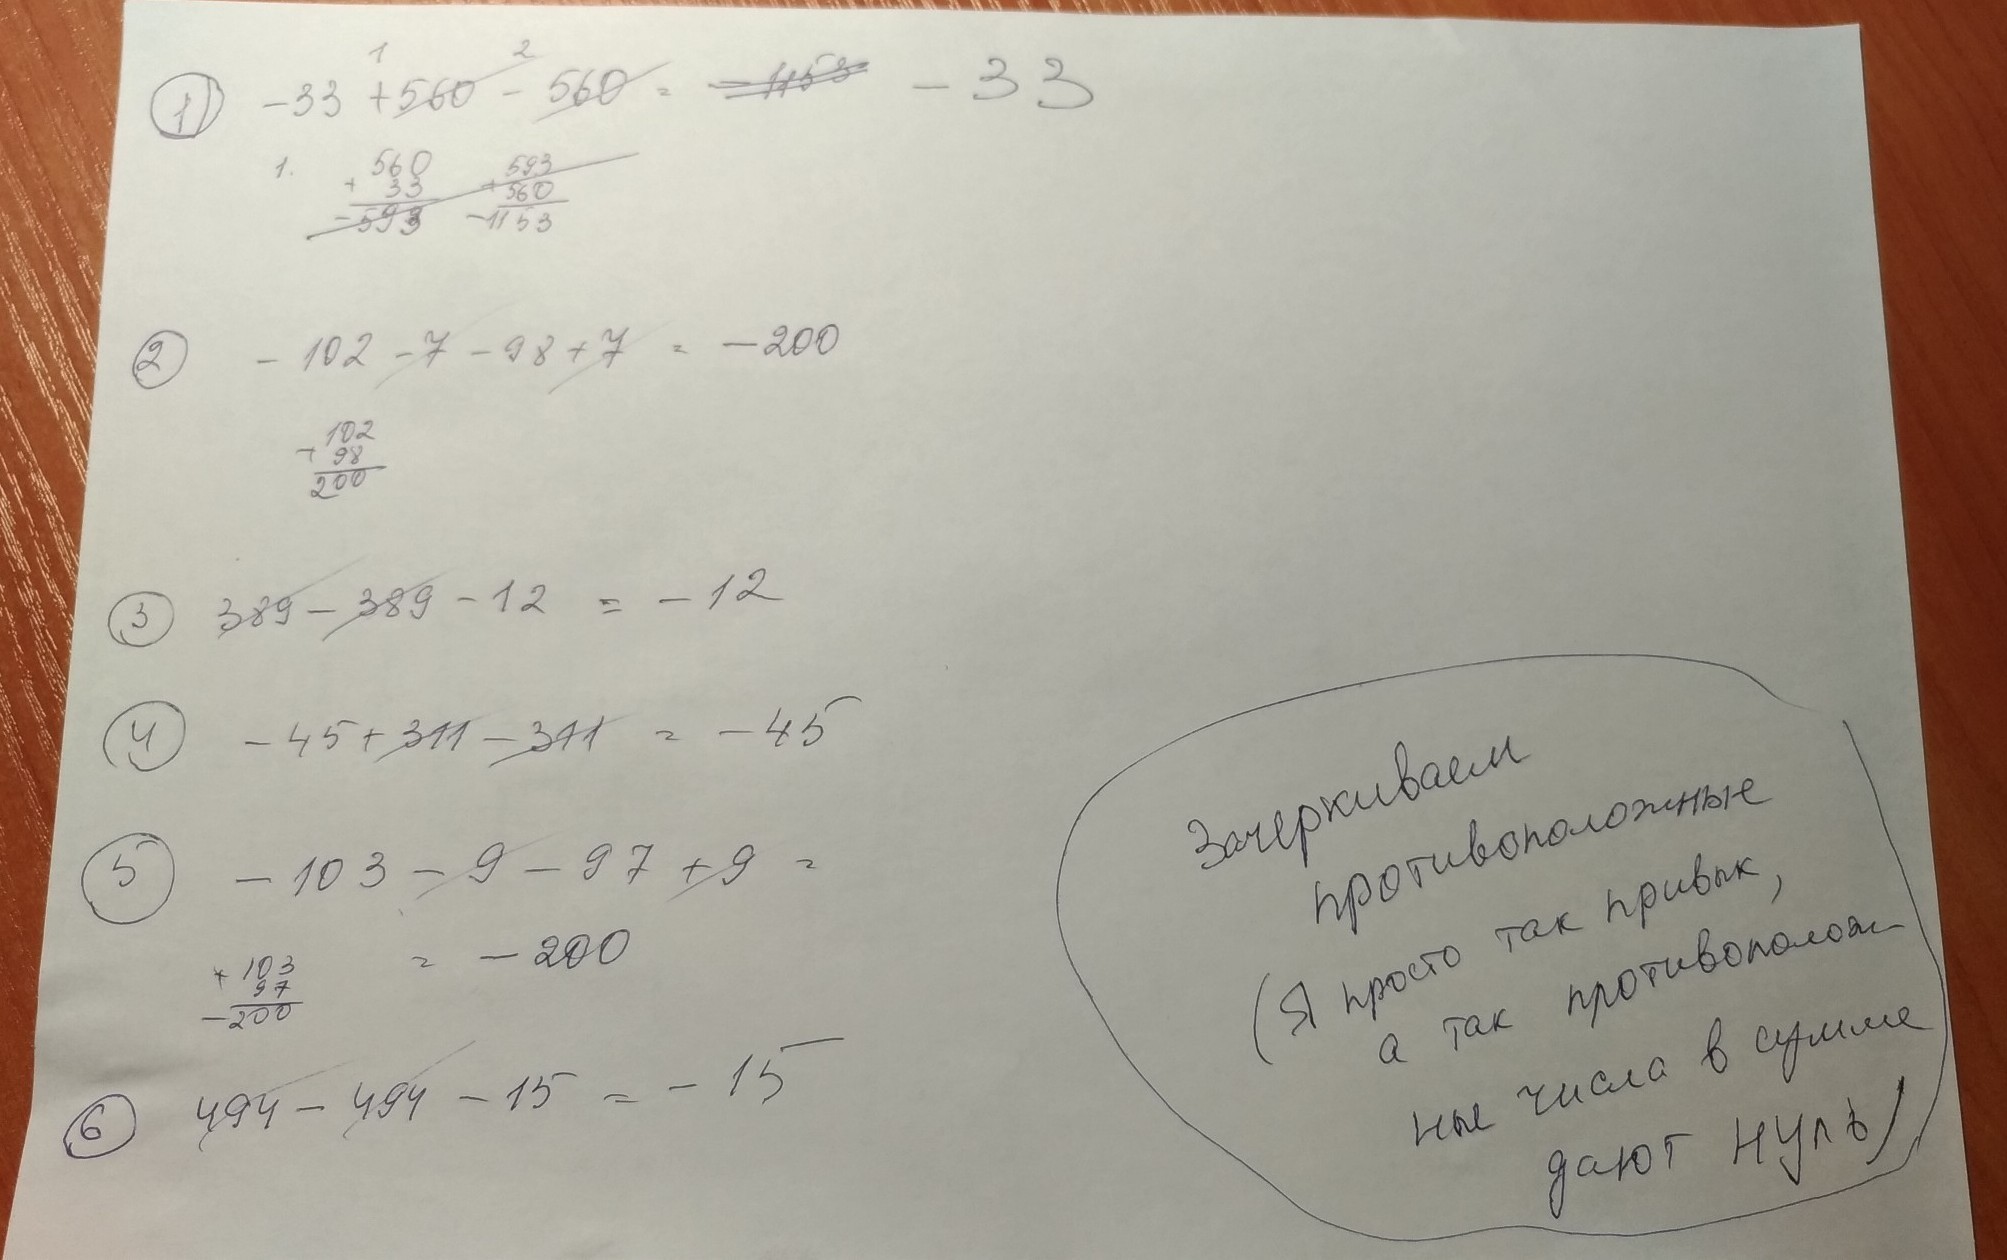 1 2
1 -33 +560 - 560 = -1153 -33
1. 560 593
+ 33 + 560
-593 -1153
2 - 102 - 7 - 98 + 7 = -200
102
+ 98
200
3 389 - 389 - 12 = - 12
4 - 45 + 311 - 311 = - 45
5 - 103 - 9 - 97 + 9 =
= - 200
+ 103
97
-200
6 494 - 494 - 15 = - 15
Зачеркиваем
противоположные
(Я просто так привык,
а так противополож
ные числа в сумме
дают нуль)